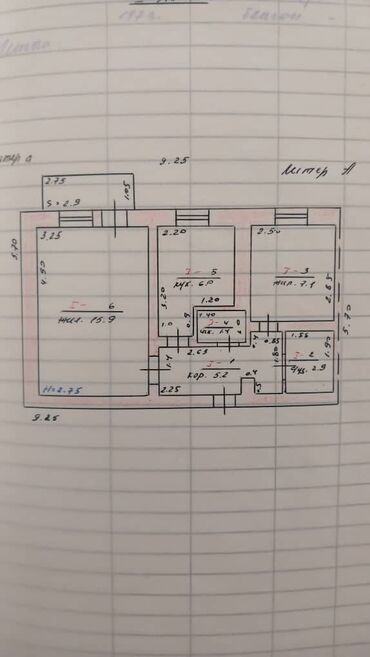 197 г.
Литер А
9.25
2.75
S = 2.9
1.05
5.70
3.25
2.20
2.50
4.90
I- 6
жил. 15.9
I- 5
кух. 6.0
I- 3
жил. 7.1
2.85
3.20
1.20
1.0
0.9
1.40
I- 4
2.65
0.85
1.55
5.70
1.4
I- 1
кор. 5.2
1.80
I- 2
с/уз. 2.9
1.90
H=2.75
2.25
0.4
9.25